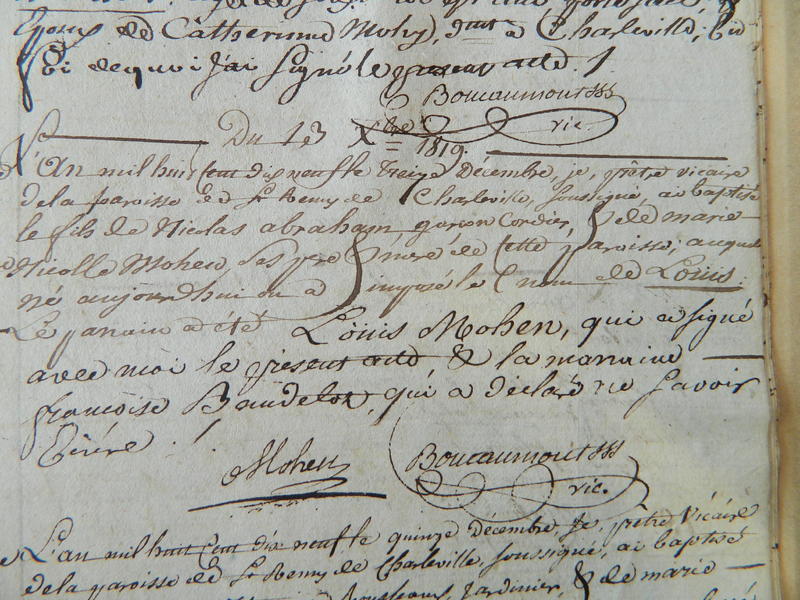 Epoux de Câtherinne Mohy, dmt à Charleville; En
foi de quoi j'ai signé le présent acte ./.
Boucaumont
vic.
Du 13 Xbre 1819.
L'An mil huit cent dix neuf le Treize Décembre, je, prêtre vicaire
de la paroisse de St Remy de Charleville, soussigné, ai baptisé
le fils de Nicolas abraham garçon Cordier, & de marie
Nicolle Mohen, ses père & mère de cette paroisse; auquel
né aujourd'hui on a imposé le nom de Louis.
Le parain a été Louis Mohen, qui a signé
avec moi le présent acte & la maraine
françoise Baudelot, qui a déclaré ne savoir
Ecrire ./.
Mohen
Boucaumont
vic.
L'an mil huit Cent dix neuf le quinze Décembre, Je, prêtre Vicaire
de la paroisse de St Remy de Charleville, soussigné, ai baptisé
Jardinier, & de marie